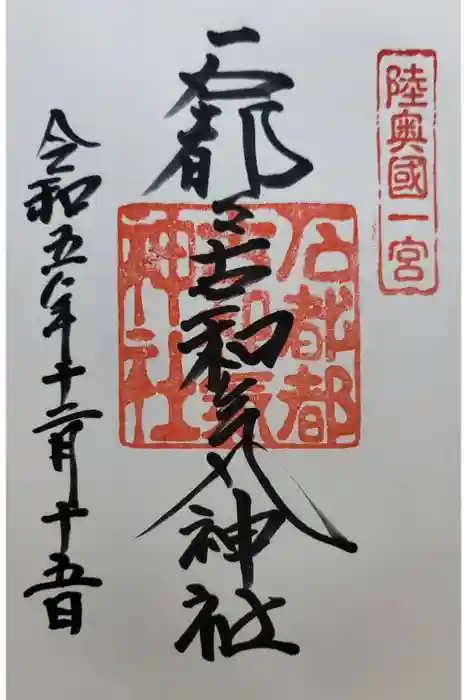 陸奥國一宮
石都々古和気神社
石都都
古和氣
神社
令和五年十二月十五日